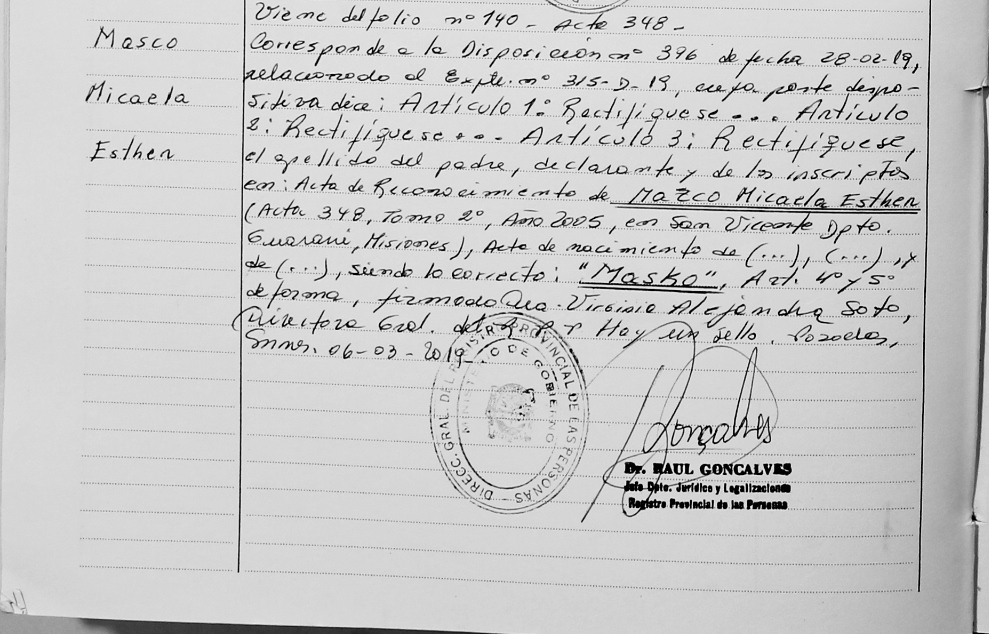 Viene del folio nº 140 - Acta 348 -
Masco
Micaela
Esther
Corresponde a la Disposición nº 396 de fecha 28-02-19,
relacionado al Expte. nº 315-D-19, cuya parte dispo-
sitiva dice: Artículo 1º Rectifíquese ... Artículo
2: Rectifíquese ... Artículo 3: Rectifíquese,
el apellido del padre, declarante y de los inscriptos
en: Acta de Reconocimiento de MAZCO Micaela Esther
(Acta 348, Tomo 2º, Año 2005, en San Vicente Dpto.
Guaraní, Misiones), Acta de nacimiento de (...), (...), y
de (...), siendo lo correcto: "Masko", Art. 4º y 5º
de forma, firmado Dra. Virginia Alejandra Soto,
Directora Gral. del R.P.P Hay un sello. Posadas,
06-03-2019-
DIRECC. GRAL. DEL REGISTRO PROVINCIAL DE LAS PERSONAS -
MINISTERIO DE GOBIERNO
Gonçalves
Dr. RAUL GONCALVES
Jefe Dpto. Jurídico y Legalizaciones
Registro Provincial de las Personas